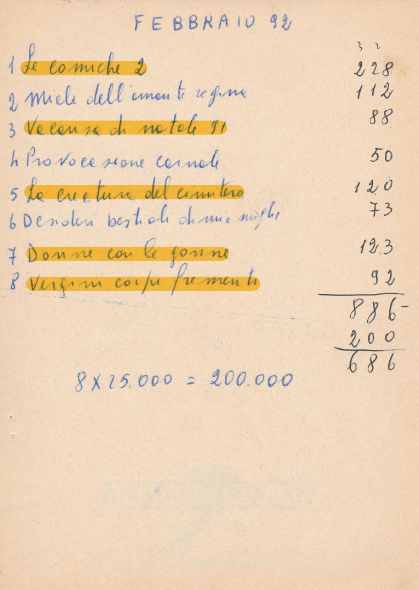 FEBBRAIO 92
3 2
1 Le comiche 2 228
2 Miele dell'amante regina 112
3 Vacanze di natale 91 88
4 Provocazione carnale 50
5 La creatura del cimitero 120
6 Desideri bestiali di mia moglie 73
7 Donne con le gonne 123
8 Vergini corpi frementi 92
886-
200
686
8 X 25.000 = 200.000